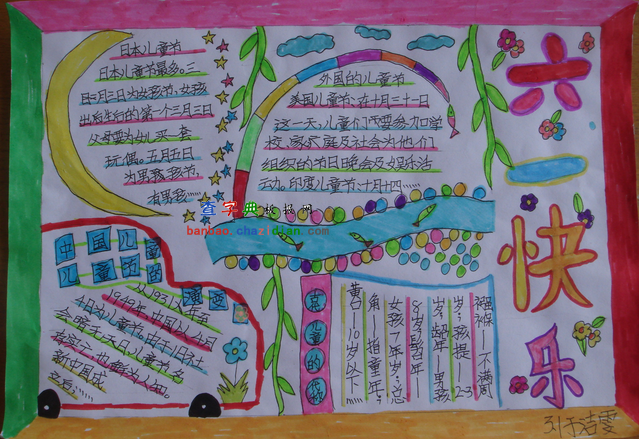 日本儿童节
日本儿童节最多。三
月3月三日为女孩节,女孩
出后生行的第一个三月三日
父母要为女儿买一套
玩偶。五月五日
为男孩孩节,
有男孩……
外国的儿童节
美国儿童节:在十月三十一日
这一天,儿童们都要参加学
校、家庭及社会为他们
组织的节日晚会及娱乐活
动。印度儿童节:十月十四……
六
一
快
乐
查字典手抄报网
banbao.chazidian.com
中国儿童
儿童节的
演变
从1931义年五
1949年,中国从4月4日
4日为儿童节,由于旧社
新中国成
关儿童的代称
襁褓——不满
岁;孩提——2-3
岁;龆年——男孩
8岁;髫年——
女孩7年岁;总
角——指童年;
黄口——10岁以下
刘洁雯